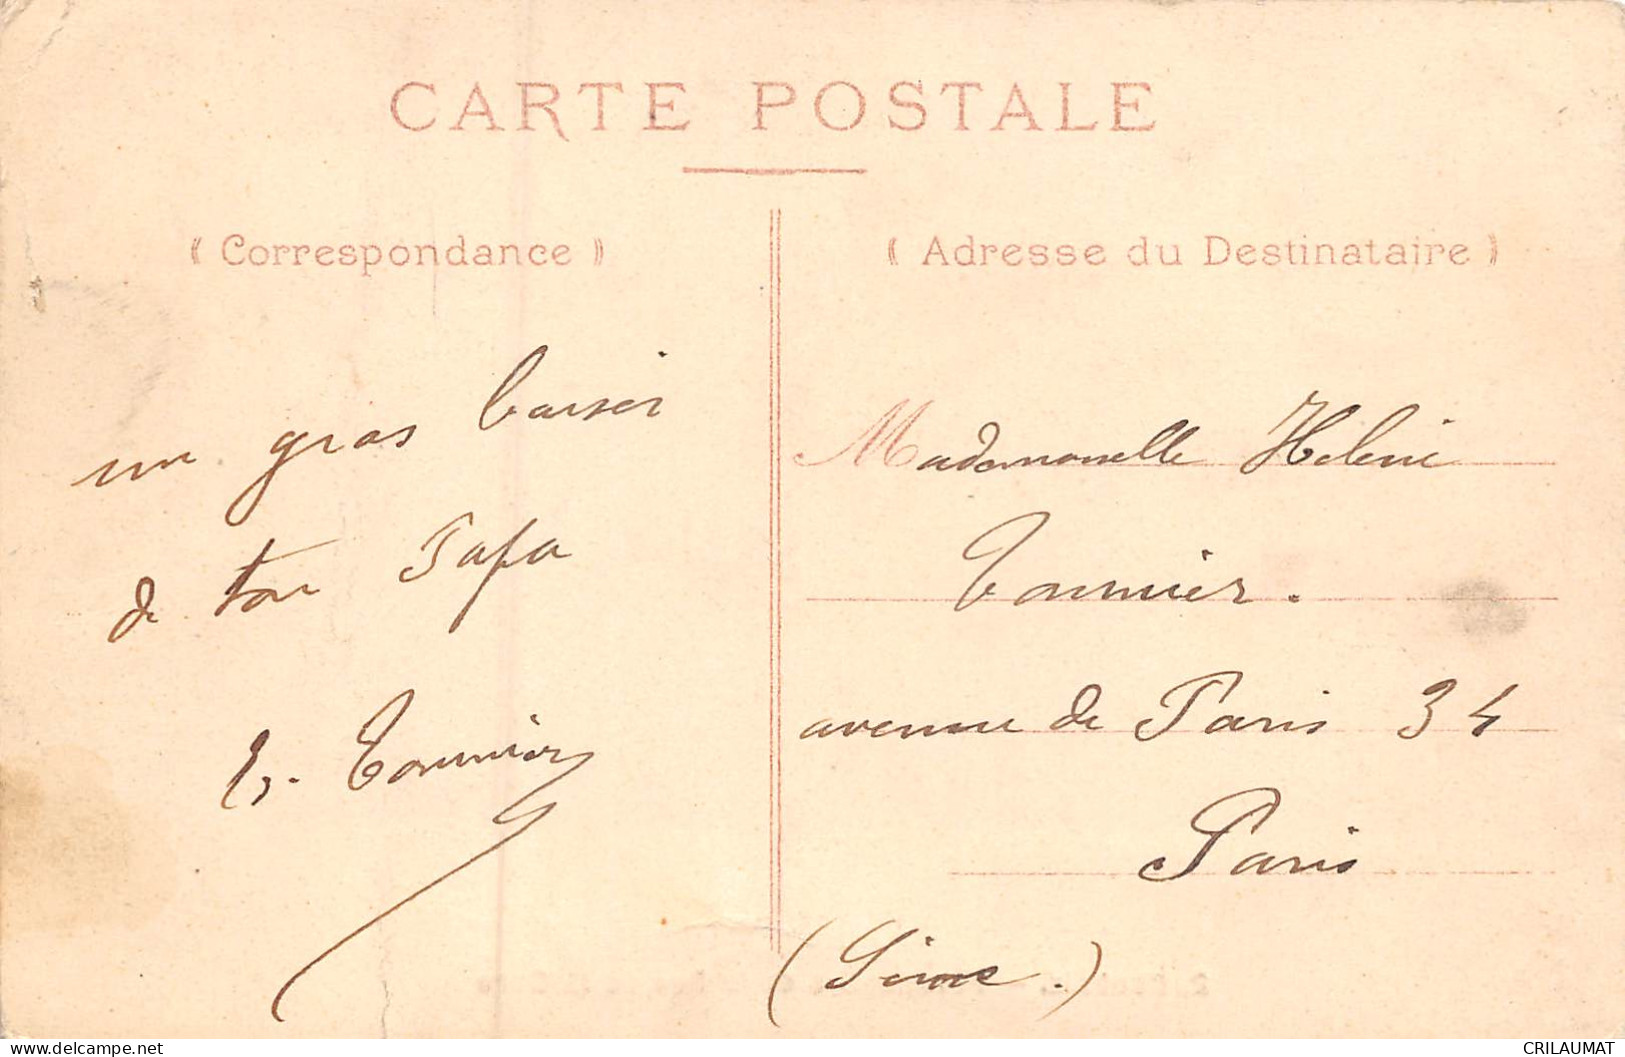 CARTE POSTALE
( Correspondance )
( Adresse du Destinataire )
un gros baiser
de ton Papa
E. Tournier
Mademoiselle Helene
Tournier.
avenue de Paris 34
Paris
(Seine.)
www.delcampe.net
CRILAUMAT